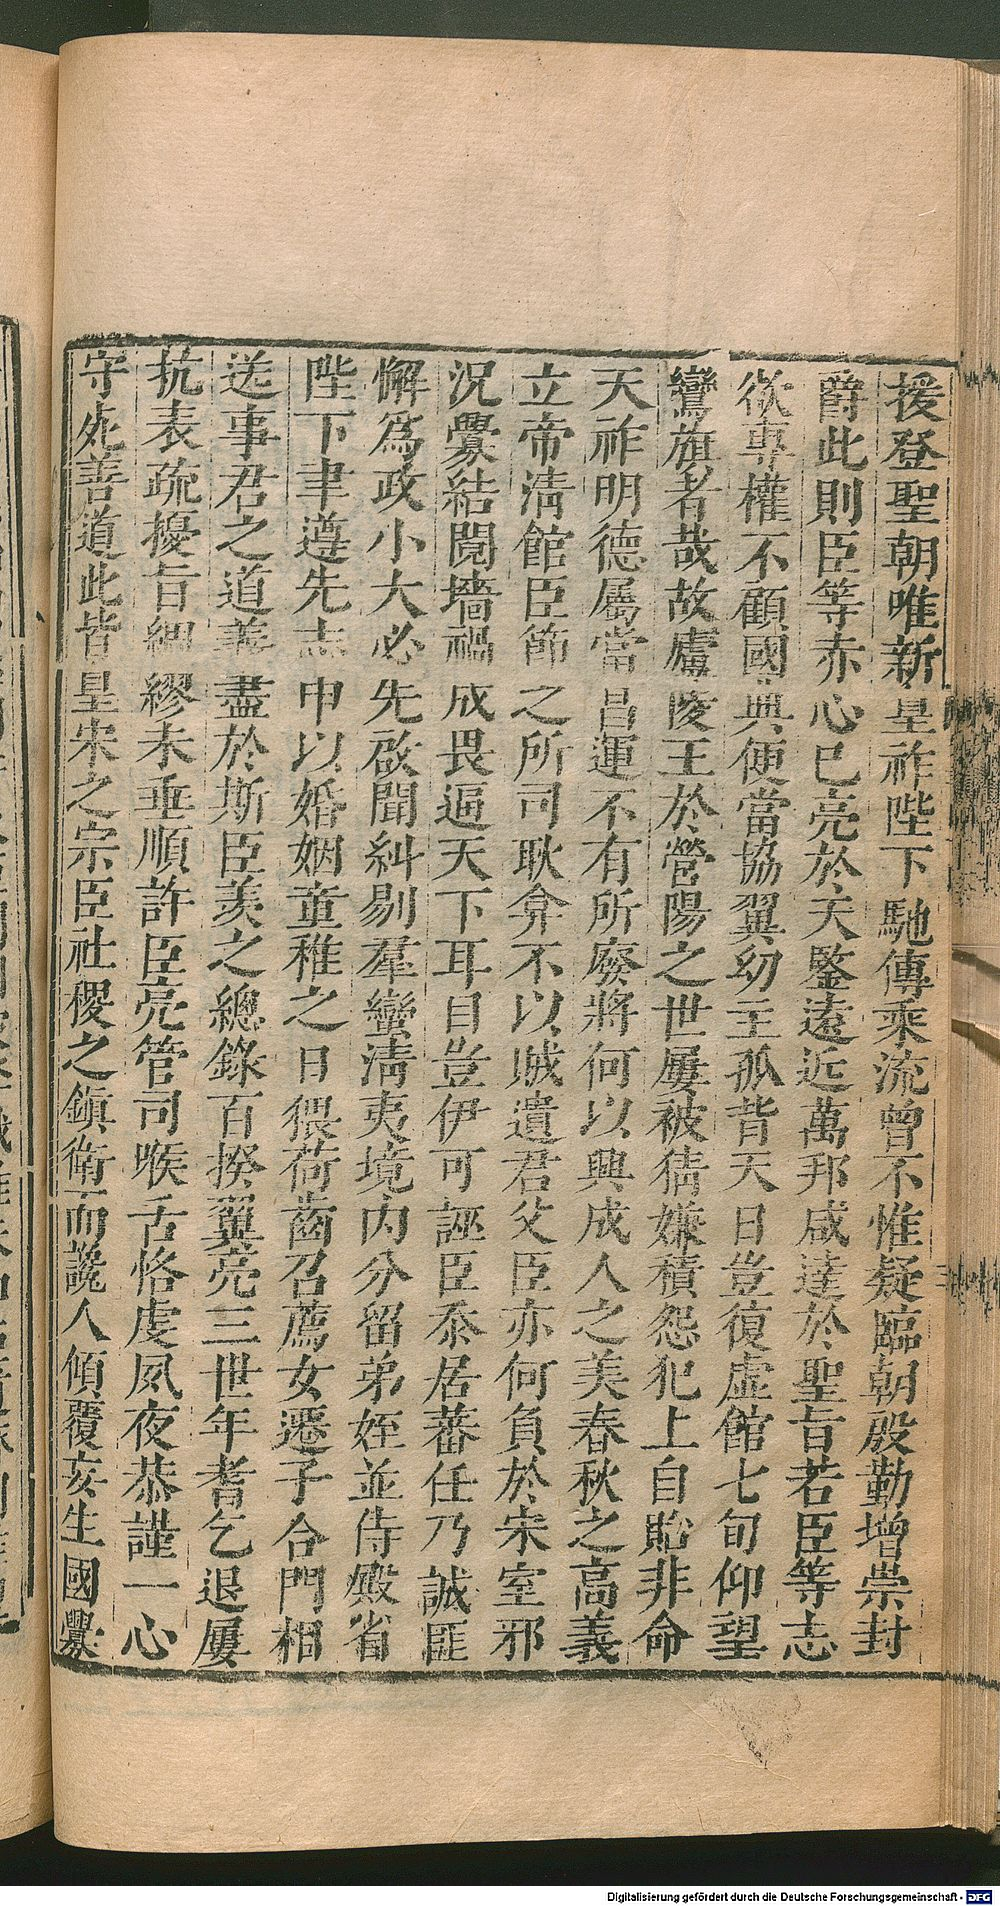 援登聖朝唯新皇祚陛下馳傳乘流曾不惟疑臨朝殷勤增崇封
爵此則臣等赤心已亮於天鑒遠近萬邦咸達於聖旨若臣等志
欲專權不顧國典便當協翼幼主孤背天日豈復虛館七旬仰望
鸞旗者哉故廬陵王於營陽之世屢被猜嫌積怨犯上自貽非命
天祚明德屬當昌運不有所廢將何以興成人之美春秋之高義
立帝淸館臣節之所司耿弇不以賊遺君父臣亦何負於宋室邪
況釁結鬩墻禍成畏逼天下耳目豈伊可誣臣忝居蕃任乃誠匪
懈爲政小大必先啟聞糾剔羣蠻淸夷境內分留弟姪並侍殿省
陛下聿遵先志申以婚姻童稚之日猥荷齒召薦女遷子合門相
送事君之道義盡於斯臣羨之總錄百揆翼亮三世年耆乞退屢
抗表疏擾旨綢繆未垂順許臣亮管司喉舌恪虔夙夜恭謹一心
守死善道此皆皇宋之宗臣社稷之鎮衛而讒人傾覆妄生國釁
Digitalisierung gefördert durch die Deutsche Forschungsgemeinschaft - DFG